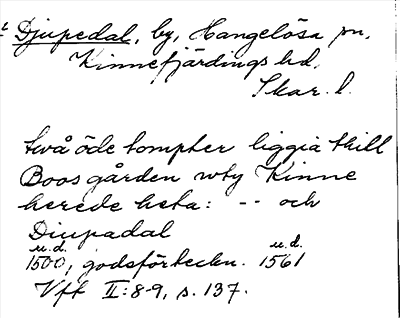 t Djupedal, by, Hangelösa sn,
Kinnefjärdings hd,
Skar. l.
twå öde tompter liggia thill
Boos gården wty Kinne
herede heta: -- och
Diupadal
u.d. u.d.
1500, godsförteckn. 1561
Vff II:8-9, s. 137.